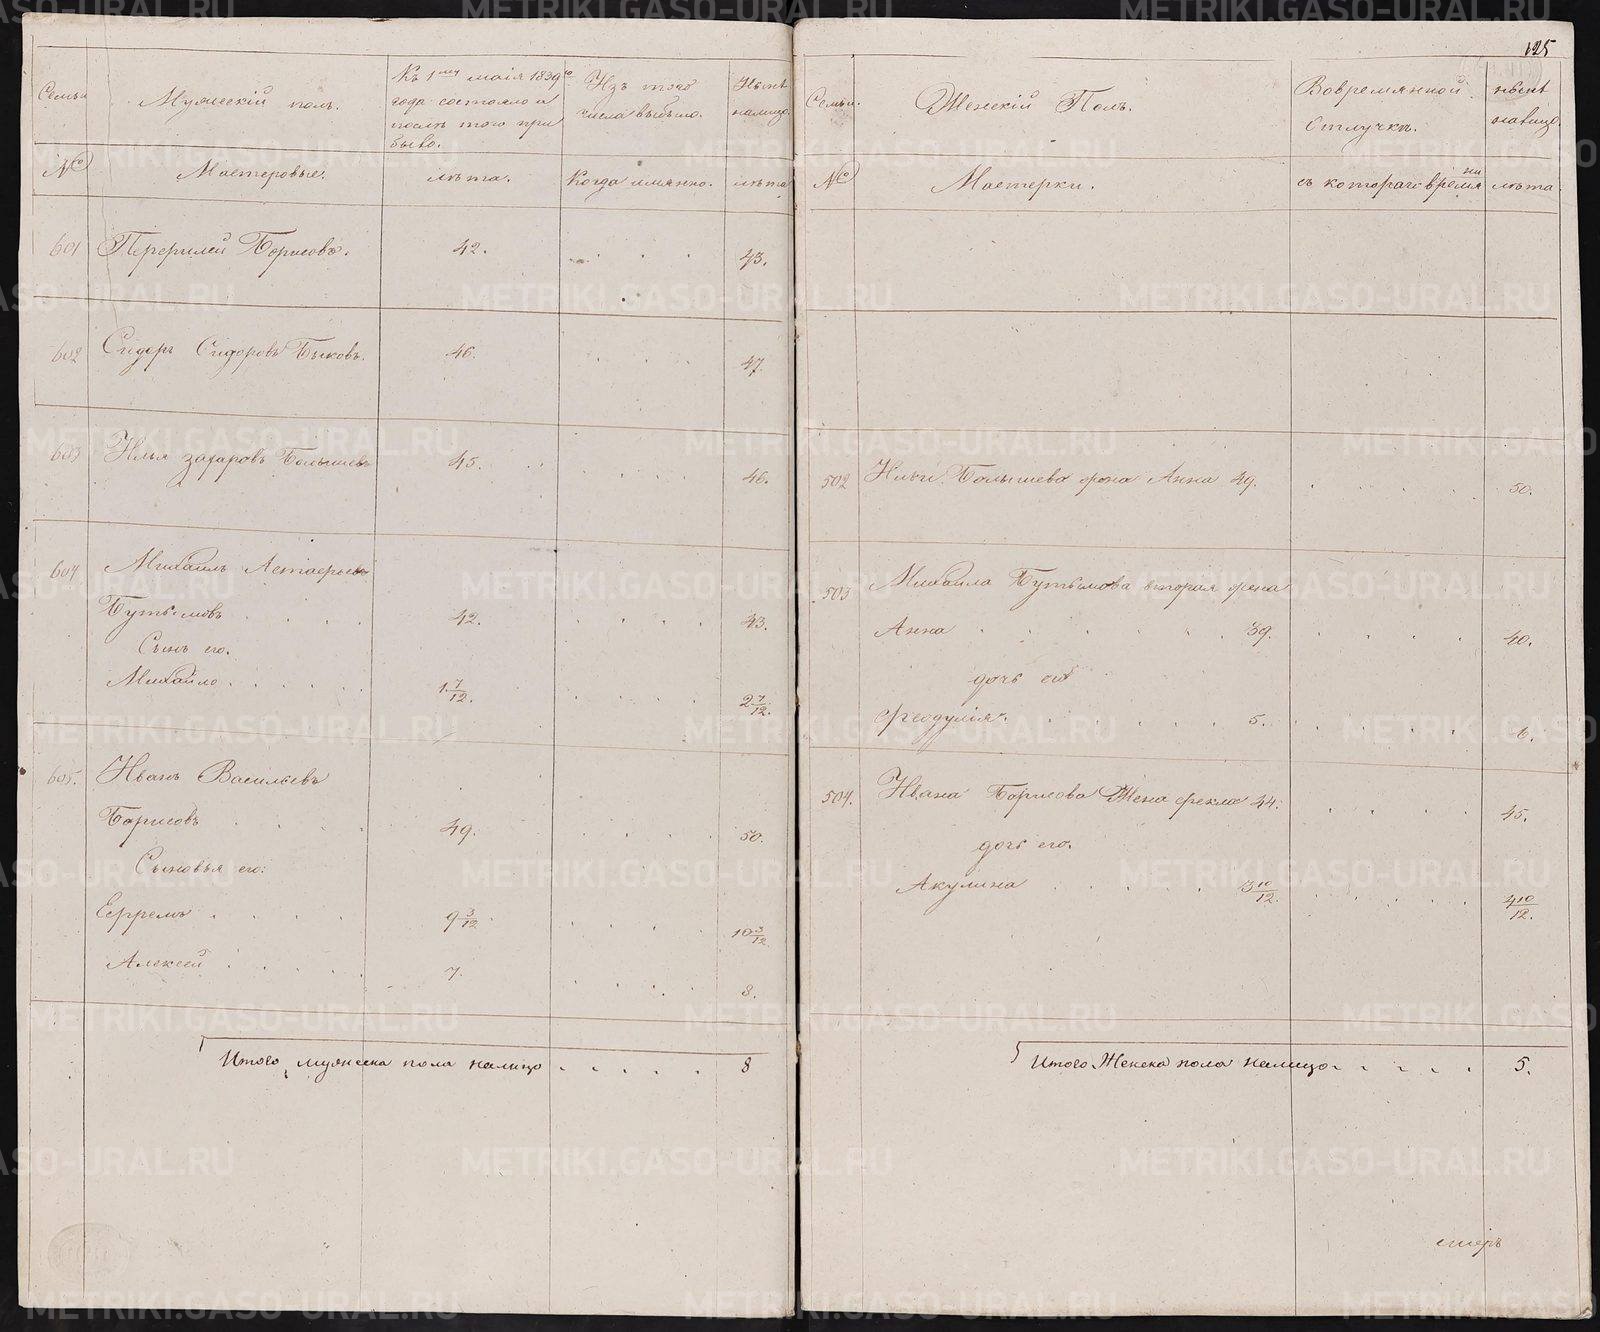 125
Семьи
Мужескій полъ.
Къ 1му маія 1839го
года состояло и
послѣ того при
было.
Изъ того
числа выбыло.
Нынѣ
налицо.
№
Мастеровые.
лѣта.
Когда имянно.
лѣта
601 Борисовъ. 42. 43.
602 Сидоръ Сидоровъ Быковъ. 46. 47.
603 Илья Захаровъ Балышевъ 45. 46.
604 Михаилъ Астафьевъ
Бутымовъ 42. 43.
Сынъ его.
Михайло 1 7/12. 2 7/12.
605. Иванъ Васильевъ
Борисовъ 49. 50.
Сыновья его:
Ефремъ 9 3/12 10 3/12.
Алексей 7. 8.
Итого мужеска пола налицо 8
Семьи.
Женскій Полъ.
Вовремянной
Отлучкѣ.
нынѣ
налицо.
№
Мастерки.
съ котораго время
ни
лѣта.
502 Ильи Балышева жена Анна 49. 50.
503 Михаила Бутымова вторая жена
Анна 39. 40.
дочь ея
Феодулія 5. 6.
504. Ивана Борисова Жена Фекла 44. 45.
дочь его.
Акулина 3 10/12. 4 10/12.
Итого Женска пола налицо 5.
METRIKI.GASO-URAL.RU